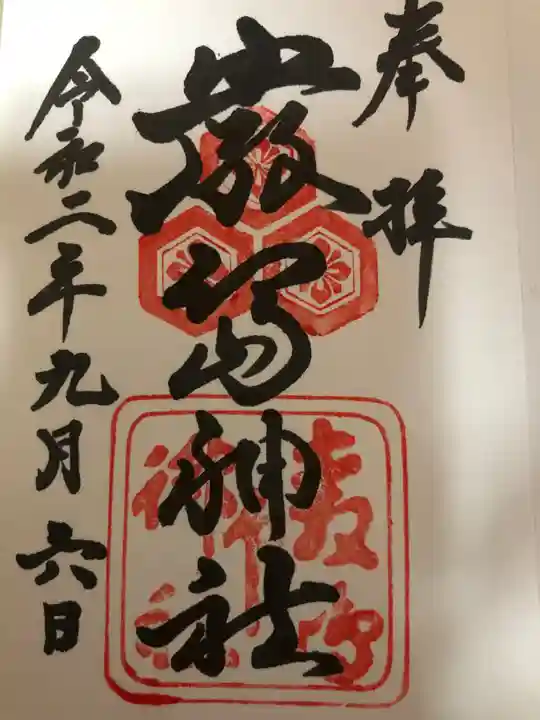 奉拝
嚴島神社
令和二年九月六日